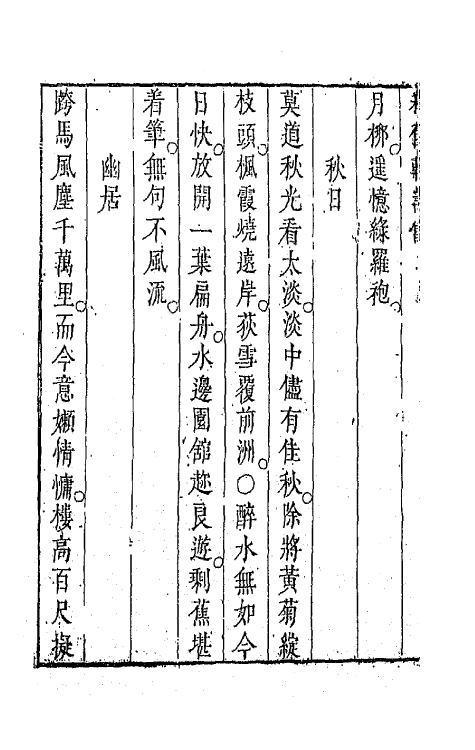 月栁遥憶綠羅袍
秋日
莫道秋光看太淡淡中儘有佳秋除將黃菊綻
枝頭楓霞燒遠岸荻雪覆前洲〇醉水無如今
日快放開一葉扁舟水邊園舘趂良遊剩蕉堪
着筆無何不風流
幽居
跨馬風塵千萬里而今意嬾情慵樓高百尺擬